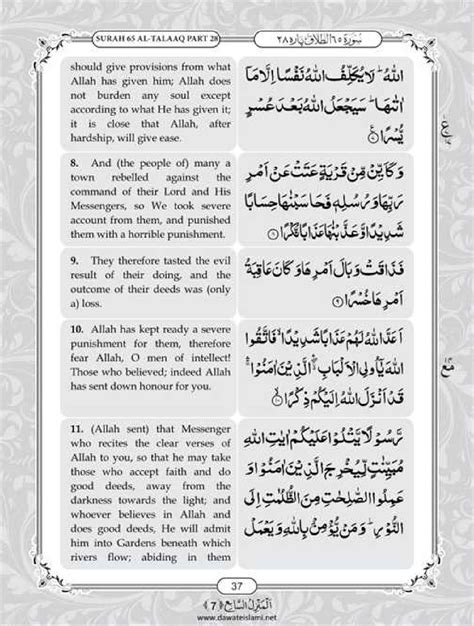 SURAH 65 AL-TALAAQ PART 28
سُوْرَة ٦٥ الطلاق پاره ٢٨
should give provisions from what
Allah has given him; Allah does
not burden any soul except
according to what He has given it;
it is close that Allah, after
hardship, will give ease.
اللّٰهُ ؕ لَا يُكَلِّفُ اللّٰهُ نَفْسًا اِلَّا مَا
اٰتٰىهَا ؕ سَيَجْعَلُ اللّٰهُ بَعْدَ عُسْرٍ
يُّسْرًا ۧ﴿٧﴾
8. And (the people of) many a
town rebelled against the
command of their Lord and His
Messengers, so We took severe
account from them, and punished
them with a horrible punishment.
وَ كَاَيِّنْ مِّنْ قَرْيَةٍ عَتَتْ عَنْ اَمْرِ
رَبِّهَا وَ رُسُلِهٖ فَحَاسَبْنٰهَا حِسَابًا
شَدِيْدًا وَّ عَذَّبْنٰهَا عَذَابًا نُّكْرًا ﴿٨﴾
9. They therefore tasted the evil
result of their doing, and the
outcome of their deeds was (only
a) loss.
فَذَاقَتْ وَبَالَ اَمْرِهَا وَ كَانَ عَاقِبَةُ
اَمْرِهَا خُسْرًا ﴿٩﴾
10. Allah has kept ready a severe
punishment for them, therefore
fear Allah, O men of intellect!
Those who believed; indeed Allah
has sent down honour for you.
اَعَدَّ اللّٰهُ لَهُمْ عَذَابًا شَدِيْدًا ۙ فَاتَّقُوا
اللّٰهَ يٰۤاُولِي الْاَلْبَابِ ۛۖۚ الَّذِيْنَ اٰمَنُوْا ۛ۟
قَدْ اَنْزَلَ اللّٰهُ اِلَيْكُمْ ذِكْرًا ﴿١٠﴾
11. (Allah sent) that Messenger
who recites the clear verses of
Allah to you, so that he may take
those who accept faith and do
good deeds, away from the
darkness towards the light; and
whoever believes in Allah and
does good deeds, He will admit
him into Gardens beneath which
rivers flow; abiding in them
رَّسُوْلًا يَّتْلُوْا عَلَيْكُمْ اٰيٰتِ اللّٰهِ
مُبَيِّنٰتٍ لِّيُخْرِجَ الَّذِيْنَ اٰمَنُوْا وَ
عَمِلُوا الصّٰلِحٰتِ مِنَ الظُّلُمٰتِ اِلَى
النُّوْرِ ؕ وَ مَنْ يُّؤْمِنْۢ بِاللّٰهِ وَ يَعْمَلْ
37
اَلْمَنْزِلُ السَّابِع ﴿7﴾
www.dawateislami.net